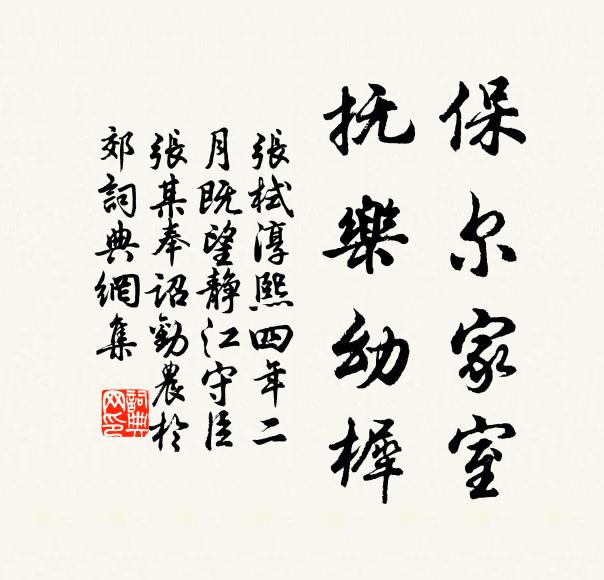 保尔家室
抚樂幼樨
張栻淳熙四年二
月既望静江守臣
張某奉詔勸農於
郊詞典網集
詞典
网印